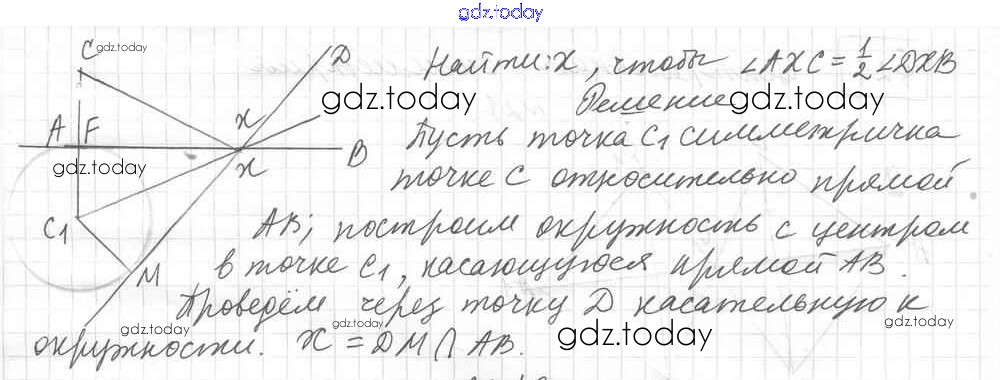 gdz.today
C gdz.today
D
Найти: X, чтобы ∠AXC = 1/2 ∠DXB
gdz.today
Решение gdz.today
A F
x
B
Пусть точка C₁ симметрична
gdz.today
x
точке C относительно прямой
C₁
AB; построим окружность с центром
M
в точке C₁, касающуюся прямой AB.
Проведём через точку D касательную к
gdz.today gdz.today gdz.today
окружности. X = DM ∩ AB.
gdz.today